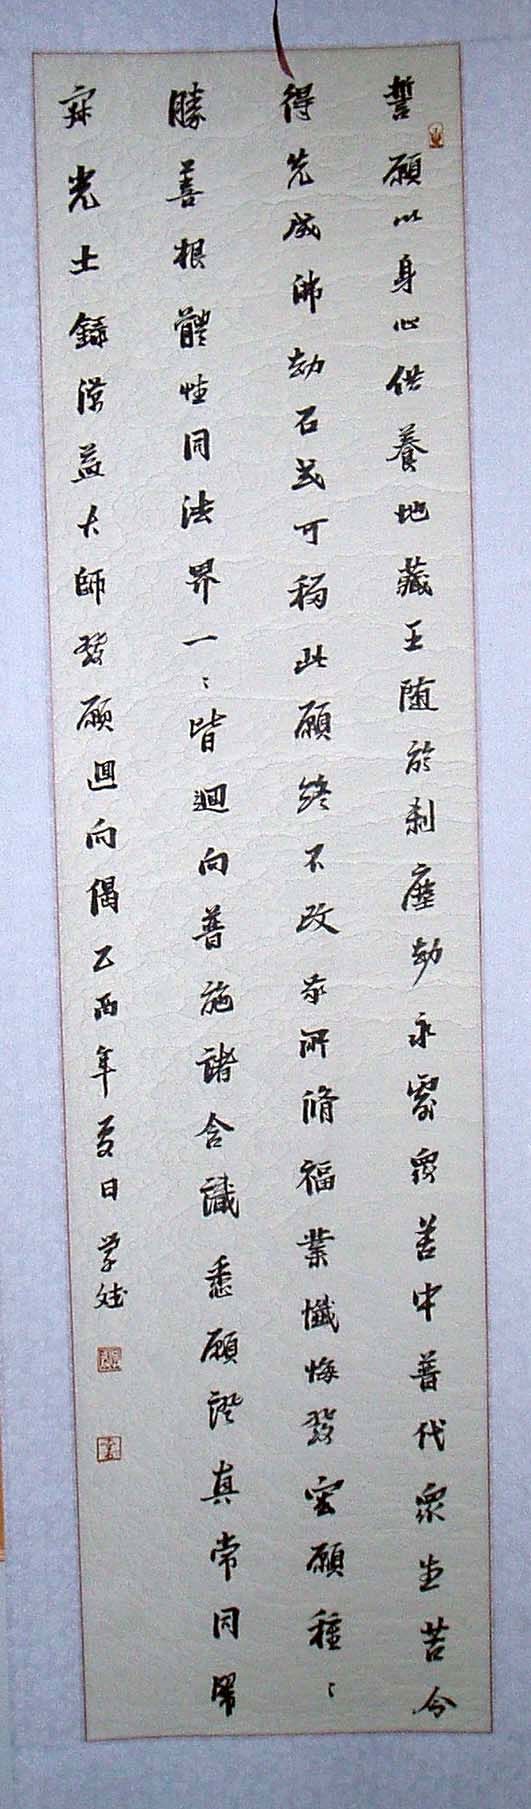 誓願以身心供養地藏王随於剎塵劫永處衆苦中普代衆生苦令
得先成佛劫石或可移此願終不改我所脩福業懺悔發宏願種〻
勝善根體性同法界一〻皆迴向普施諸含識悉願證真常同歸
寂光土錄澫益大師發願迴向偈乙酉年夏日学斌